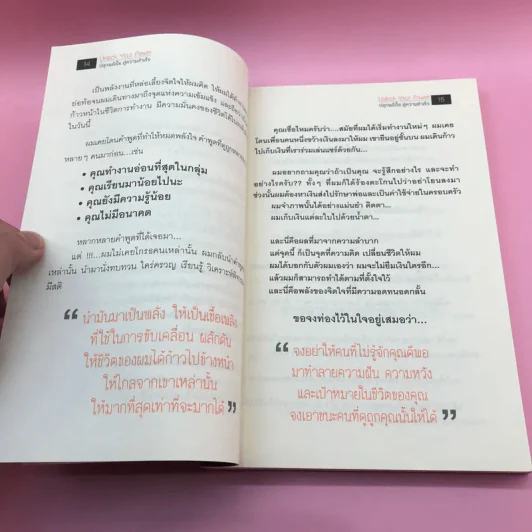 14
Unlock Your Power
ปลุกพลังใจ สู่ความสำเร็จ
เป็นพลังงานที่หล่อเลี้ยงจิตใจให้ผมคิด ให้ผมได้
ย่อท้อจนผมเดินทางมาถึงจุดแห่งความเข้มแข็ง และ
ก้าวหน้าในชีวิตการทำงาน มีความมั่นคงของชีวิตได้
ในวันนี้
ผมเคยโดนคำพูดที่ทำให้หมดพลังใจ คำพูดที่
หลายๆ คนมาก่อน...เช่น
• คุณทำงานอ่อนที่สุดในกลุ่ม
• คุณเรียนมาน้อยไปนะ
• คุณยังมีความรู้น้อย
• คุณไม่มีอนาคต
หลากหลายคำพูดที่ได้เจอมา...
แต่ !!!...ผมไม่เคยโกรธคนเหล่านั้น ผมกลับนำคำพูด
เหล่านั้น นำมานั่งทบทวน ใคร่ครวญ เรียนรู้ วิเคราะห์
มีสติ
“ นำมันมาเป็นพลัง ให้เป็นเชื้อเพลิง
ที่ใช้ในการขับเคลื่อน ผลักดัน
ให้ชีวิตของผมได้ก้าวไปข้างหน้า
ให้ไกลจากเขาเหล่านั้น
ให้มากที่สุดเท่าที่จะมากได้ ”
Unlock Your Power
ปลุกพลังใจ สู่ความสำเร็จ
15
คุณเชื่อไหมครับว่า...สมัยที่ผมได้เริ่มทำงานใหม่ๆ ผมเคย
โดนเพื่อนคนหนึ่งขว้างเงินลงมาให้ผม เขายืนอยู่ชั้นบน ผมเดินก้าว
ไปเก็บเงินที่เราร่วมเล่นแชร์ด้วยกัน...
ผมอยากถามคุณว่าถ้าเป็นคุณ จะรู้สึกอย่างไร และจะทำ
อย่างไรครับ?? ทั้งๆ ที่ผมก็ได้ร้องตะโกนไปว่าอย่าโยนลงมา
ช่วงนั้นผมต้องหาเงินส่งไปรักษาพ่อและเป็นค่าใช้จ่ายในครอบครัว
ผมจำภาพนั้นได้อย่างแม่นยำ ติดตา...
ผมเก็บเงินแต่ละใบไปด้วยน้ำตา...
และนี่คือผลที่มาจากความลำบาก
แต่จุดนี้ ก็เป็นจุดที่ความคิด เปลี่ยนชีวิตให้ผม
ผมได้บอกกับตัวผมเองว่า ผมจะไม่ยืมเงินใครอีก...
แล้วผมก็สามารถทำได้ตามที่ตั้งใจไว้
และนี่คือพลังของจิตใจที่มีความอดทนอดกลั้น
ขอจงท่องไว้ในใจอยู่เสมอว่า...
“ จงอย่าให้คนที่ไม่รู้จักคุณดีพอ
มาทำลายความฝัน ความหวัง
และเป้าหมายในชีวิตของคุณ
จงเอาชนะคนที่ดูถูกคุณนั้นให้ได้ ”